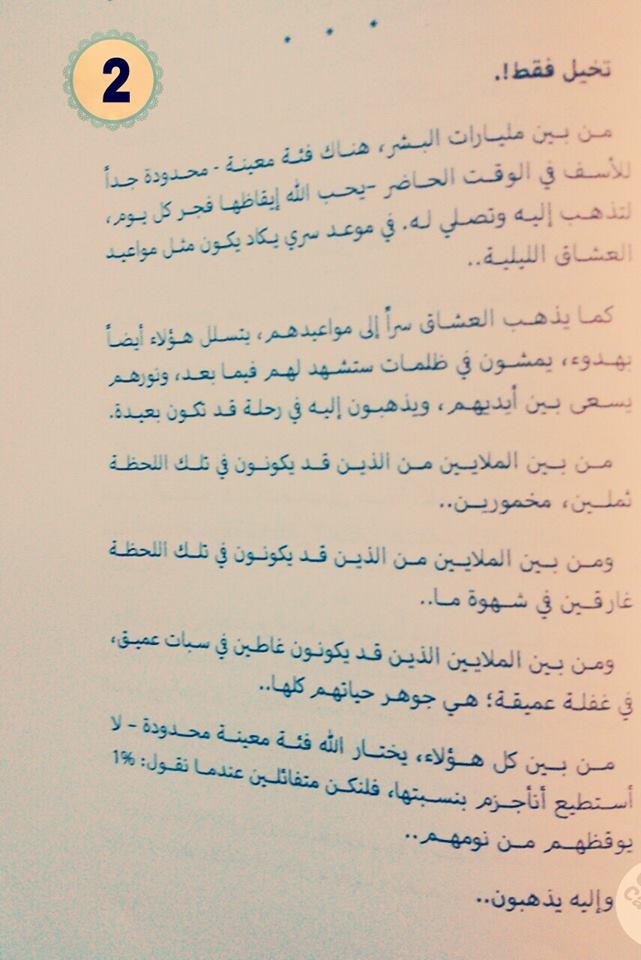 2
* * *
تخيل فقط!.
من بين مليارات البشر، هناك فئة معينة - محدودة جداً
للأسف في الوقت الحاضر –يحب الله إيقاظها فجر كل يوم،
لتذهب إليه وتصلي له. في موعد سري يكاد يكون مثل مواعيد
العشاق الليلية..
كما يذهب العشاق سراً إلى مواعيدهم، يتسلل هؤلاء أيضاً
بهدوء، يمشون في ظلمات ستشهد لهم فيما بعد، ونورهم
يسعى بين أيديهم، ويذهبون إليه في رحلة قد تكون بعيدة.
من بين الملايين من الذين قد يكونون في تلك اللحظة
ثملين، مخمورين..
ومن بين الملايين من الذين قد يكونون في تلك اللحظة
غارقين في شهوة ما..
ومن بين الملايين الذين قد يكونون غاطين في سبات عميق،
في غفلة عميقة؛ هي جوهر حياتهم كلها..
من بين كل هؤلاء، يختار الله فئة معينة محدودة – لا
أستطيع أنأجزم بنسبتها، فلنكن متفائلين عندما نقول: 1%
يوقظهم من نومهم..
وإليه يذهبون..